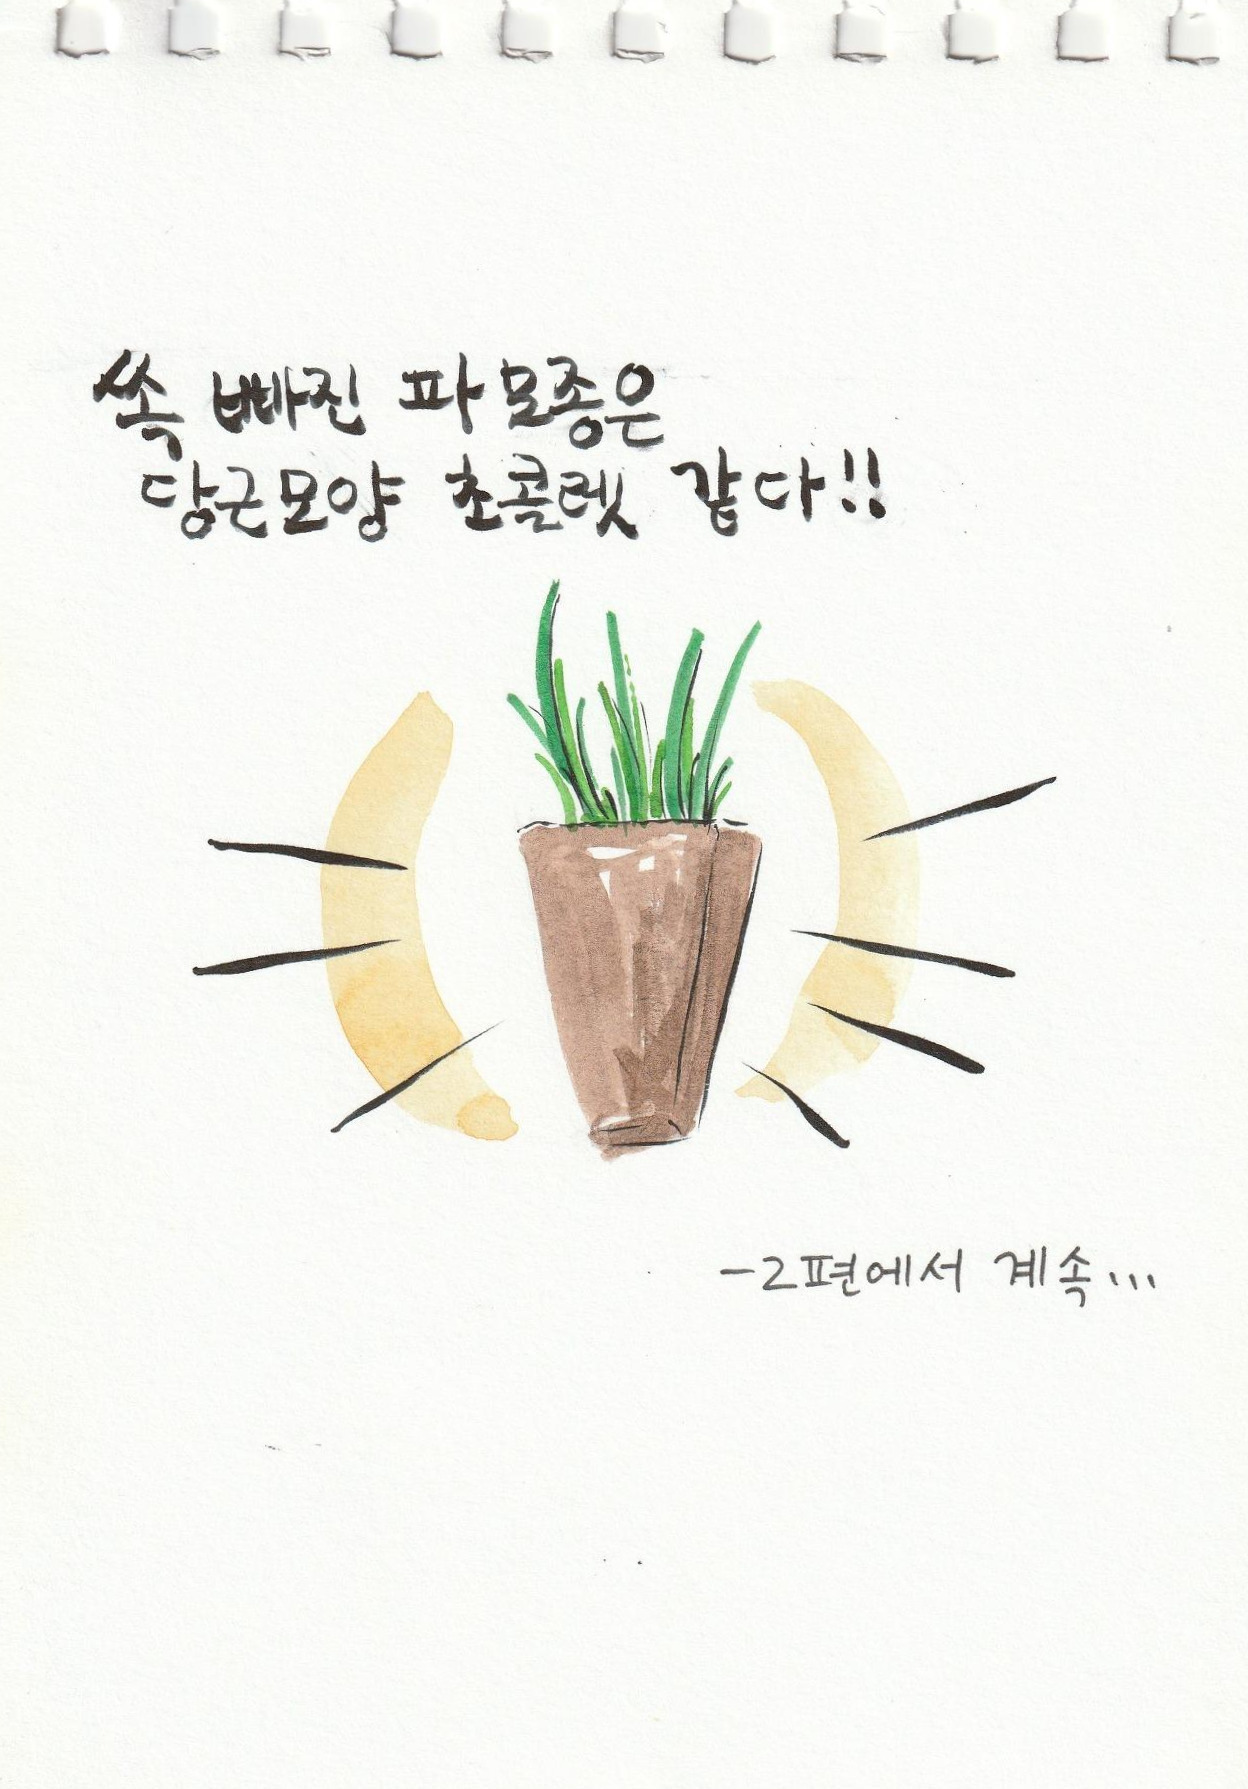 쏙 빠진 파 모종은
당근모양 초콜렛 같다!!
-2편에서 계속...